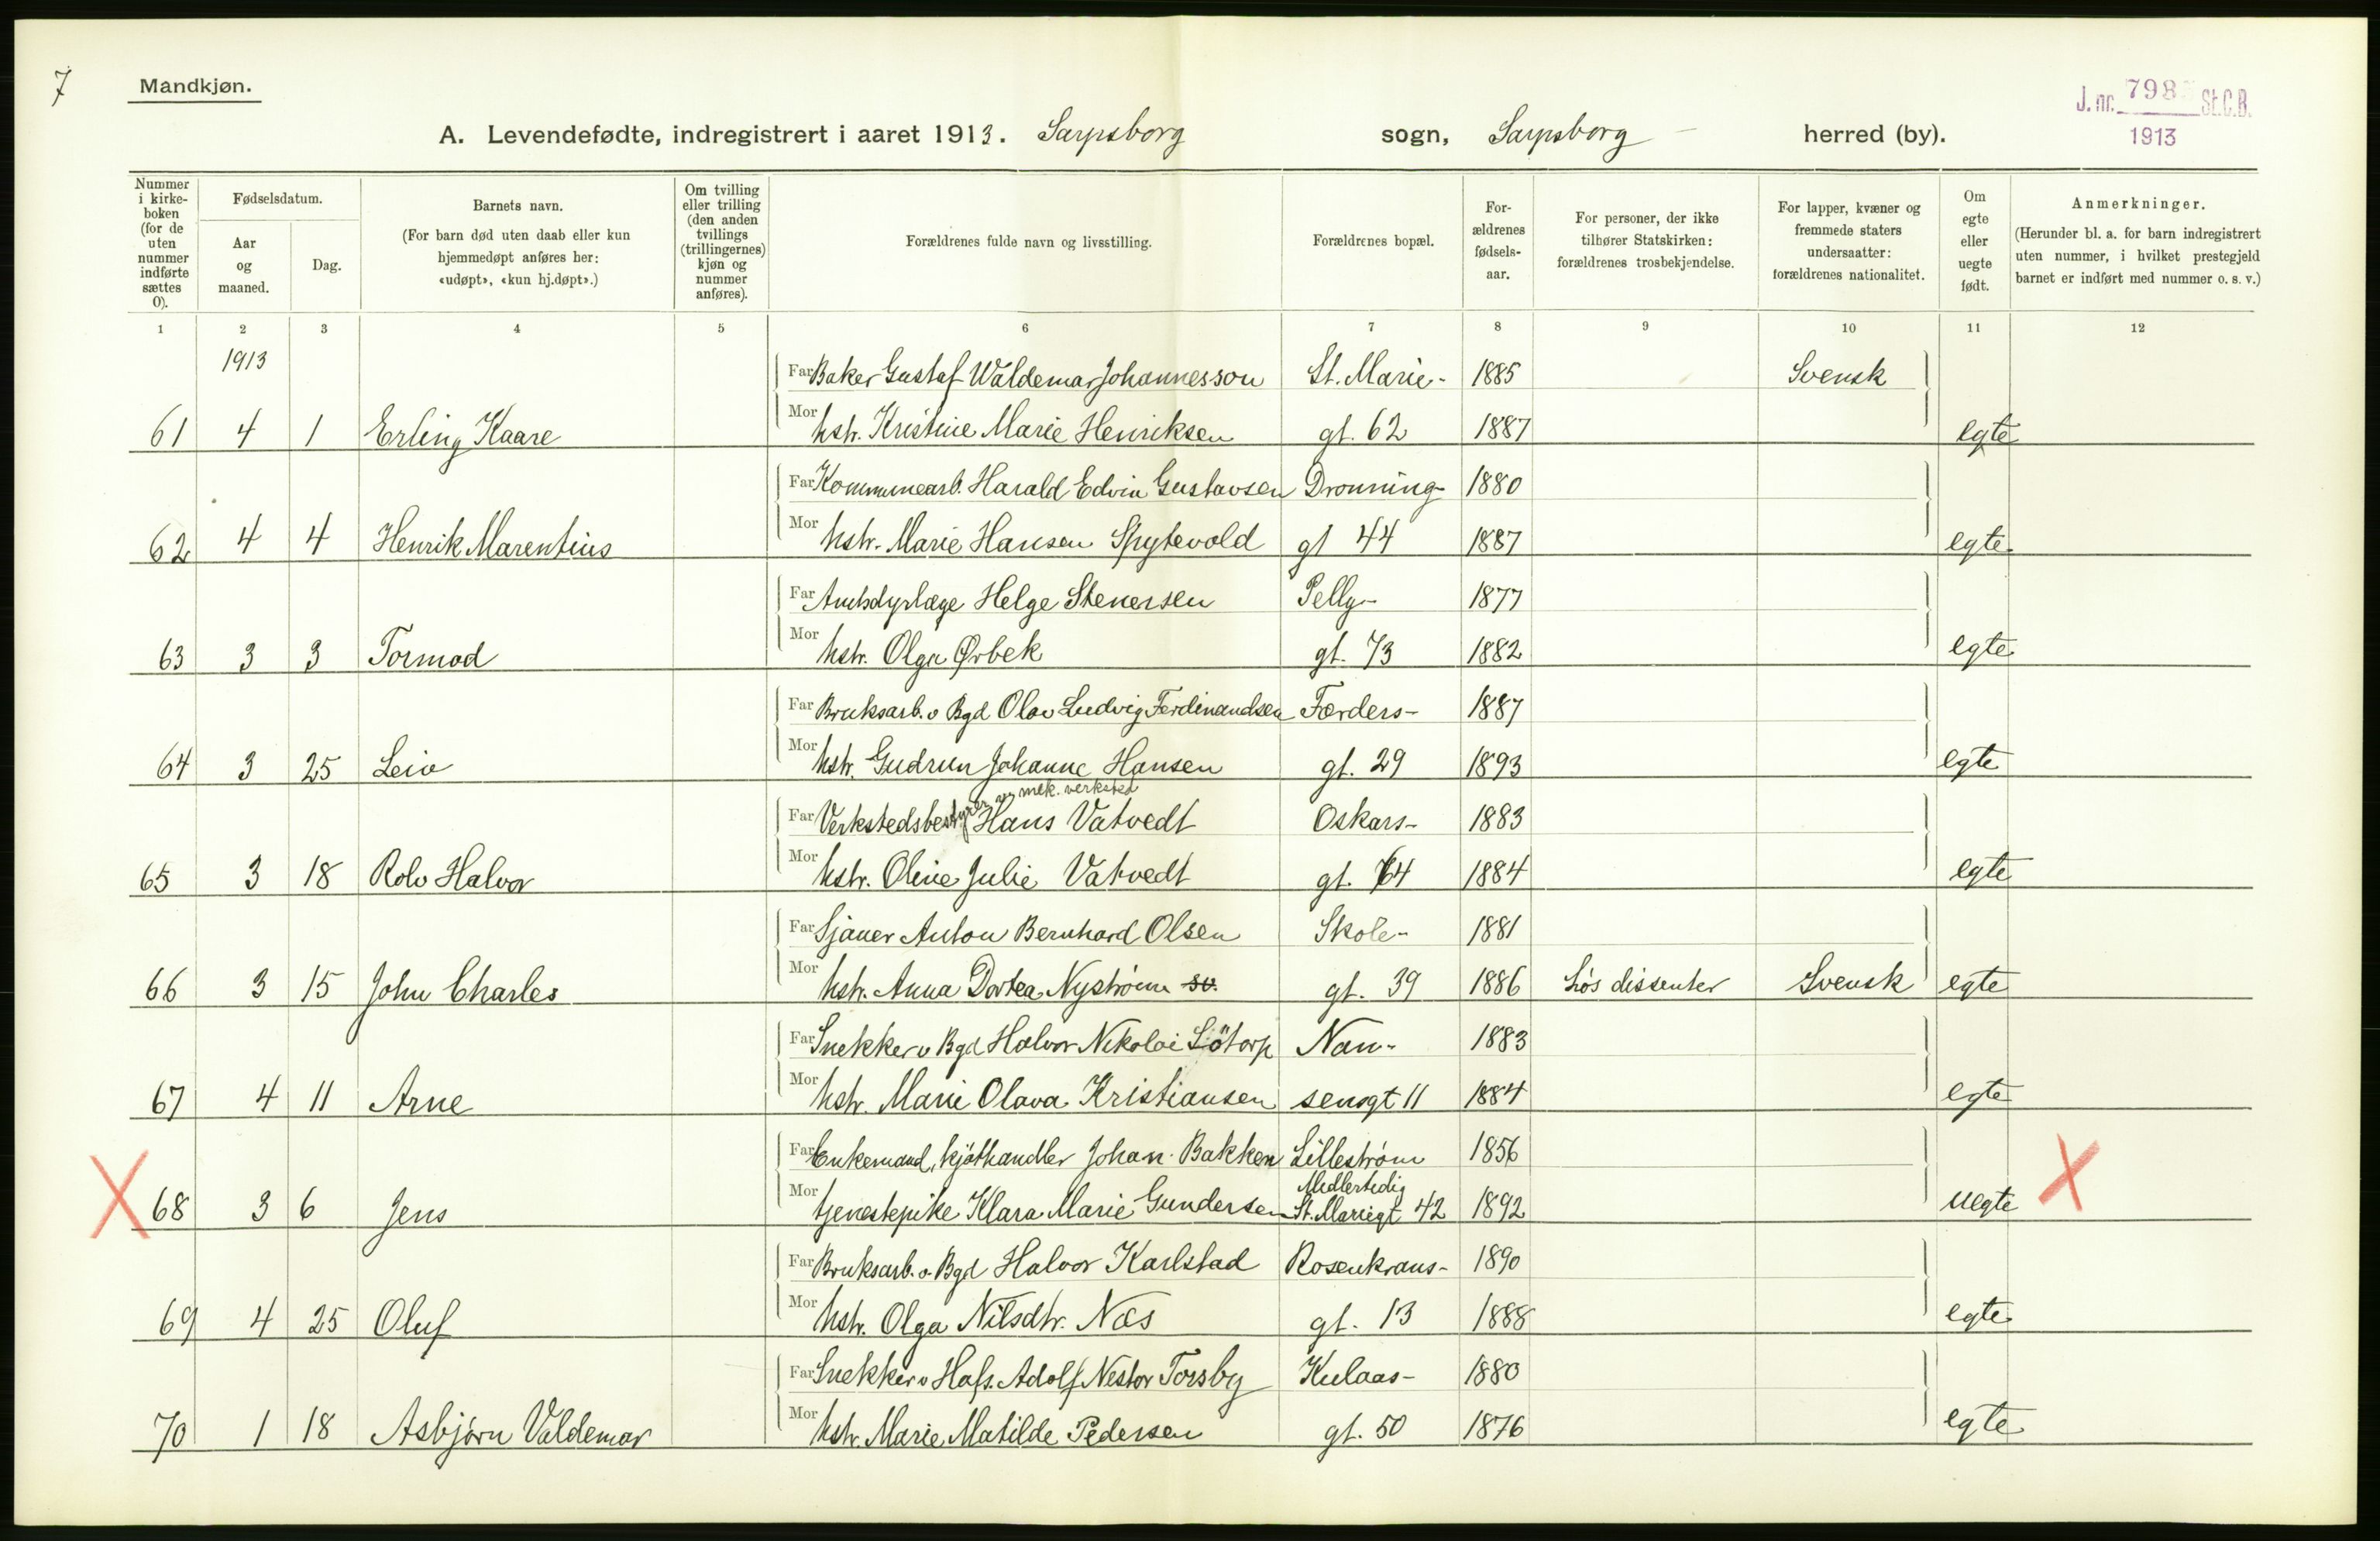 7
Mandkjøn.
J. nr. 798 St.C.B.
1913
A. Levendefødte, indregistrert i aaret 1913. Sarpsborg sogn, Sarpsborg herred (by).
Nummer i kirke-boken (for de uten nummer indførte sættes 0).
Fødselsdatum.
Aar og maaned.
Dag.
Barnets navn.
(For barn død uten daab eller kun hjemmedøpt anføres her: «udøpt», «kun hj.døpt».)
Om tvilling eller trilling (den anden tvillings (trillingernes) kjøn og nummer anføres).
Forældrenes fulde navn og livsstilling.
Forældrenes bopæl.
For-ældrenes fødsels-aar.
For personer, der ikke tilhører Statskirken: forældrenes trosbekjendelse.
For lapper, kvæner og fremmede staters undersaatter: forældrenes nationalitet.
Om egte eller uegte født.
Anmerkninger.
(Herunder bl. a. for barn indregistrert uten nummer, i hvilket prestegjeld barnet er indført med nummer o. s. v.)
1 2 3 4 5 6 7 8 9 10 11 12
1913
Far Baker Gustaf Waldemar Johannesson St. Marie- 1885 Svensk
61 4 1 Erling Kaare Mor hstr. Kristine Marie Henriksen gt. 62 1887 egte
Far Kommunearb. Harald Edvin Gustavsen Dronning- 1880
62 4 4 Henrik Marentius Mor hstr. Marie Hansen Spytevold gt 44 1887 egte
Far Amtsdyrlæge Helge Stenersen Pelly- 1877
63 3 3 Tormod Mor hstr. Olga Ørbek gt. 73 1882 egte
Far Bruksarb. v Bgd Olav Ludvig Ferdinandsen Færders- 1887
64 3 25 Leiv Mor hstr. Gudrun Johanne Hansen gt. 29 1893 egte
mek. verksted
Far Verkstedsbestyrer Hans Vatvedt Oskars- 1883
65 3 18 Rolv Halvor Mor hstr. Oline Julie Vatvedt gt. 64 1884 egte
Far Sjauer Anton Bernhard Olsen Skole- 1881
66 3 15 John Charles Mor hstr. Anna Dortea Nystrøm sv. gt. 39 1886 Løs dissenter Svensk egte
Far Snekker v Bgd Halvor Nikolai Lötorp Nan- 1883
67 4 11 Arne Mor hstr. Marie Olava Kristiansen sensgt 11 1884 egte
Far Enkemand, kjøthandler Johan Bakken Lillestrøm 1856
Midlertidig
68 3 6 Jens Mor tjenestepike Klara Marie Gundersen St. Mariegt 42 1892 uegte
Far Bruksarb. v. Bgd Halvor Karlstad Rosenkrans- 1890
69 4 25 Oluf Mor hstr. Olga Nilsdtr. Næs gt. 13 1888 egte
Far Snekker v Hafs. Adolf Nestor Torsby Kulaas- 1880
70 1 18 Asbjørn Valdemar Mor hstr. Marie Matilde Pedersen gt. 50 1876 egte